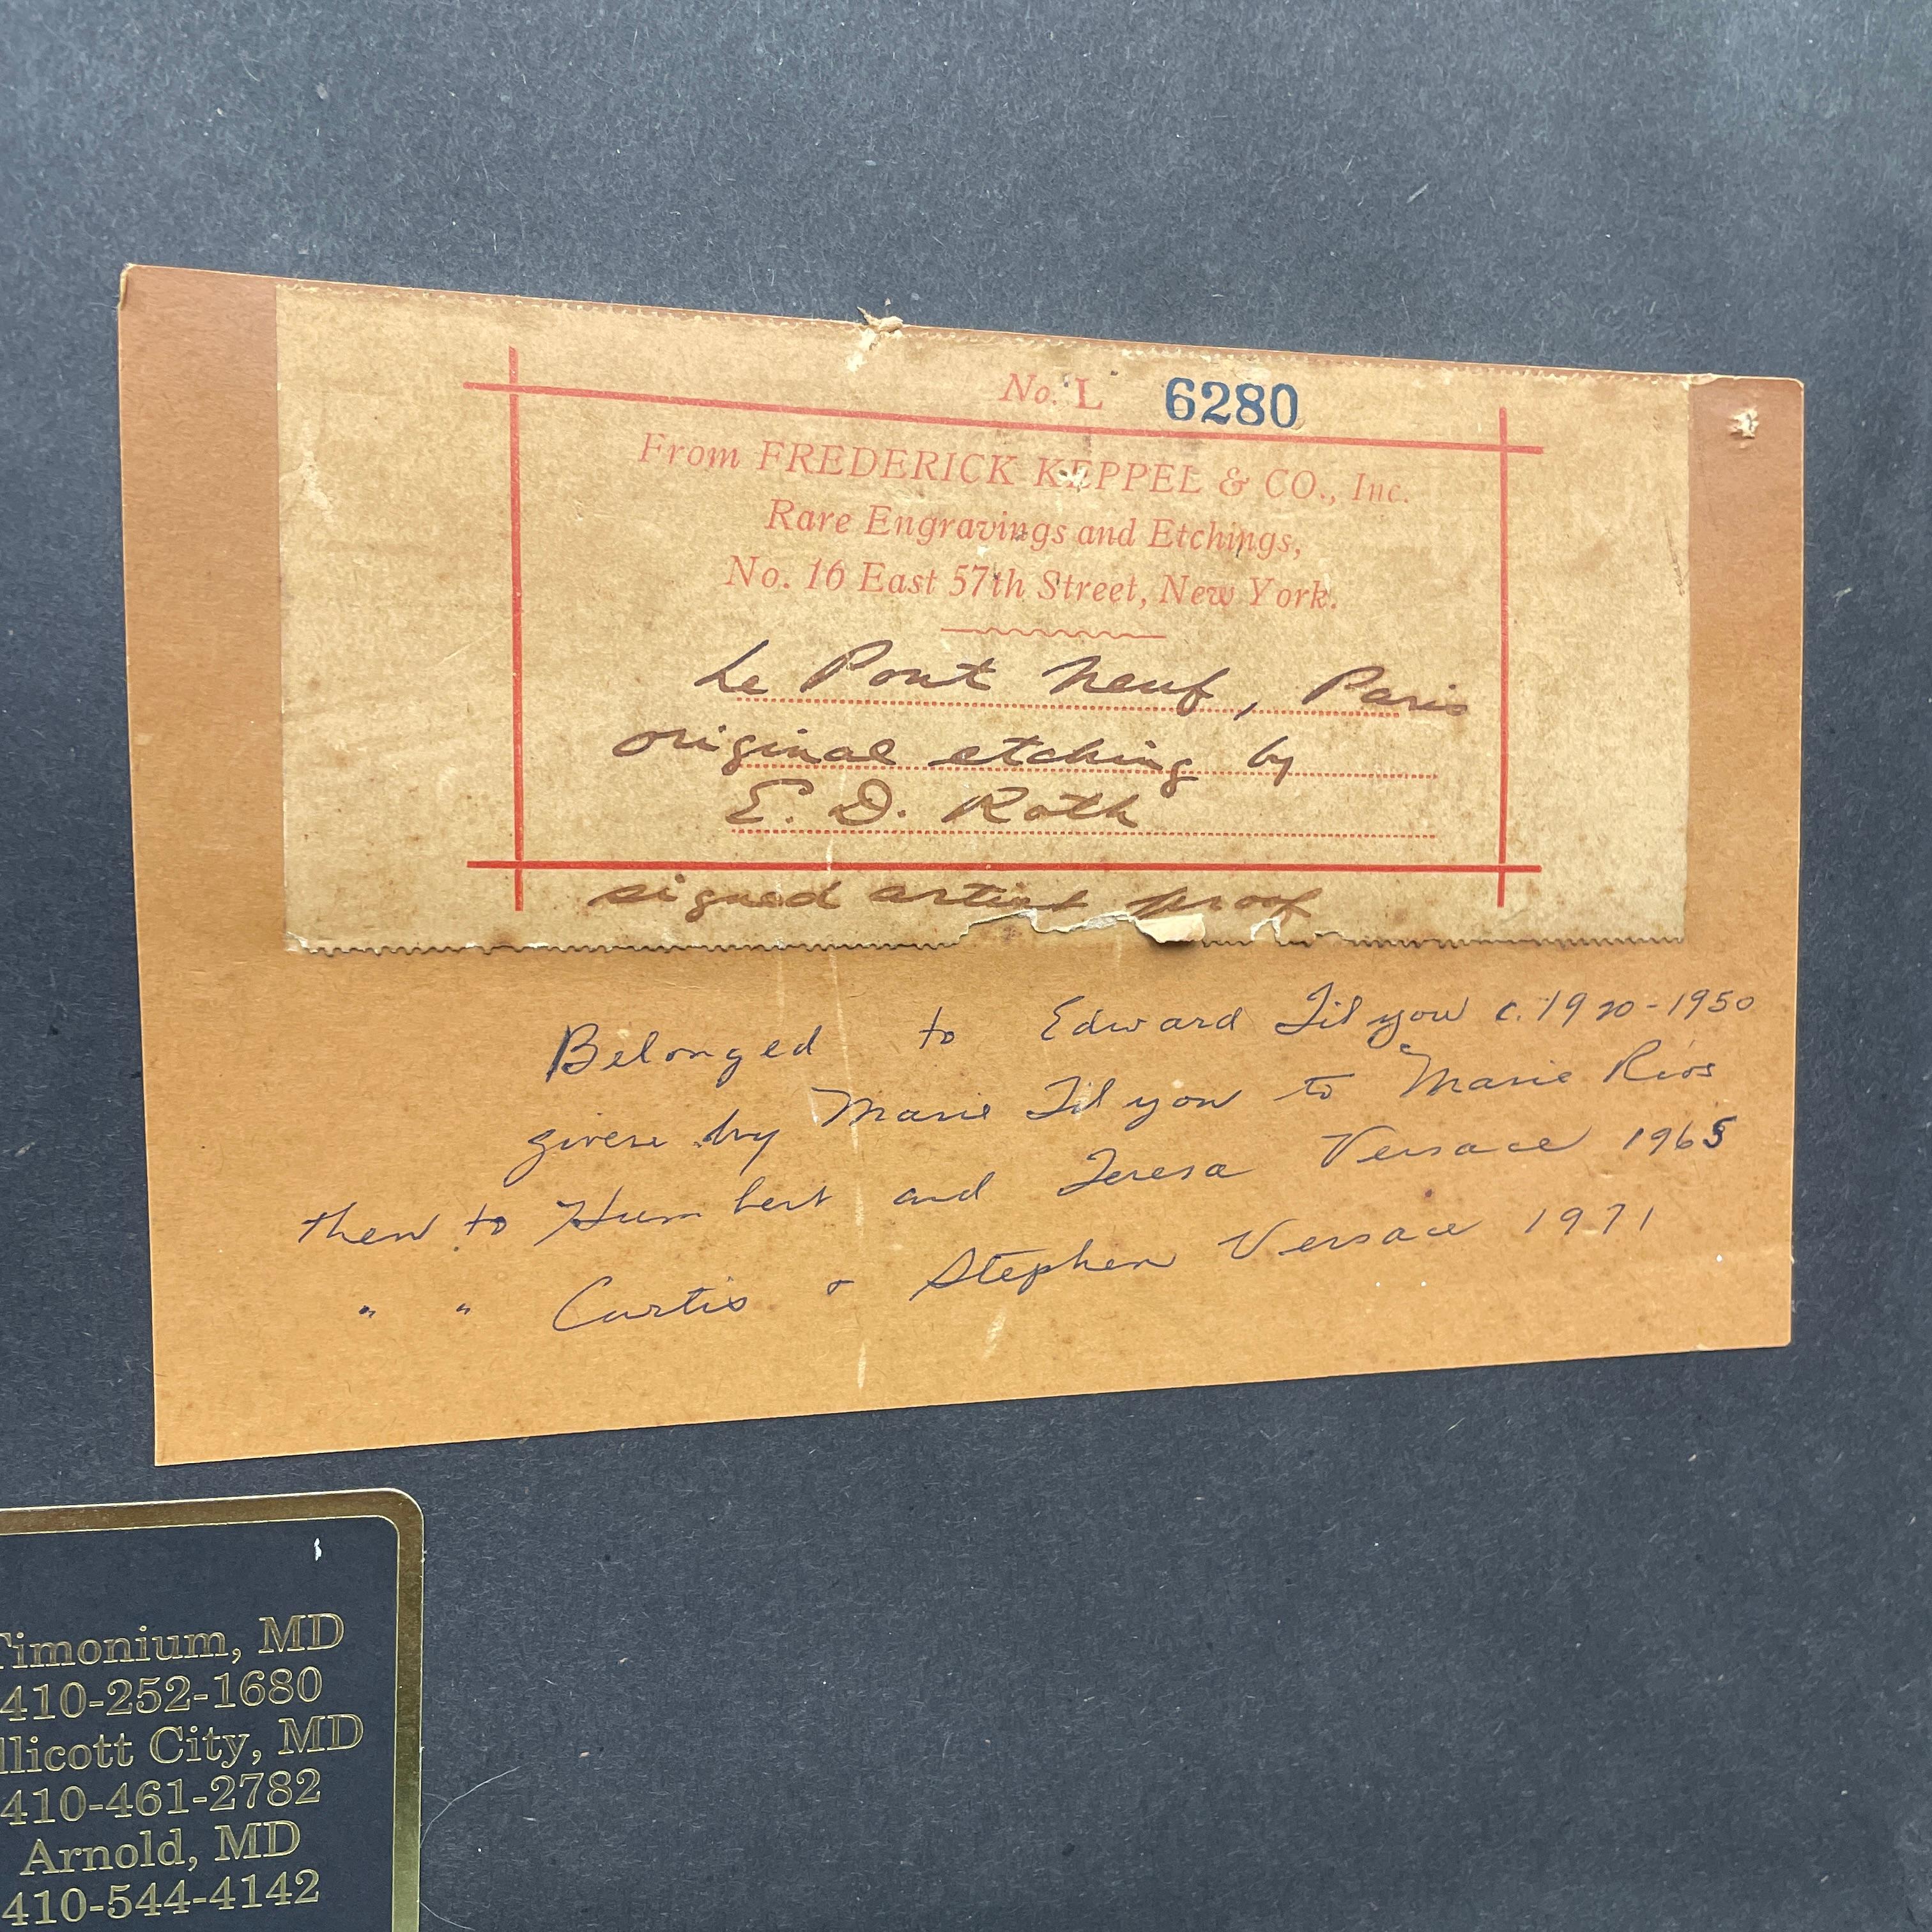 No. L 6280
From FREDERICK KEPPEL & CO., Inc.
Rare Engravings and Etchings,
No. 16 East 57th Street, New York.
Le Pont Neuf, Paris
original etching by
E. D. Roth
signed artist proof
Belonged to Edward Tilyou c. 1920-1950
given by Marie Tilyou to Marie Rios
then to Humbert and Teresa Versace 1965
" " Curtis & Stephen Versace 1971
Timonium, MD
410-252-1680
llicott City, MD
410-461-2782
Arnold, MD
410-544-4142